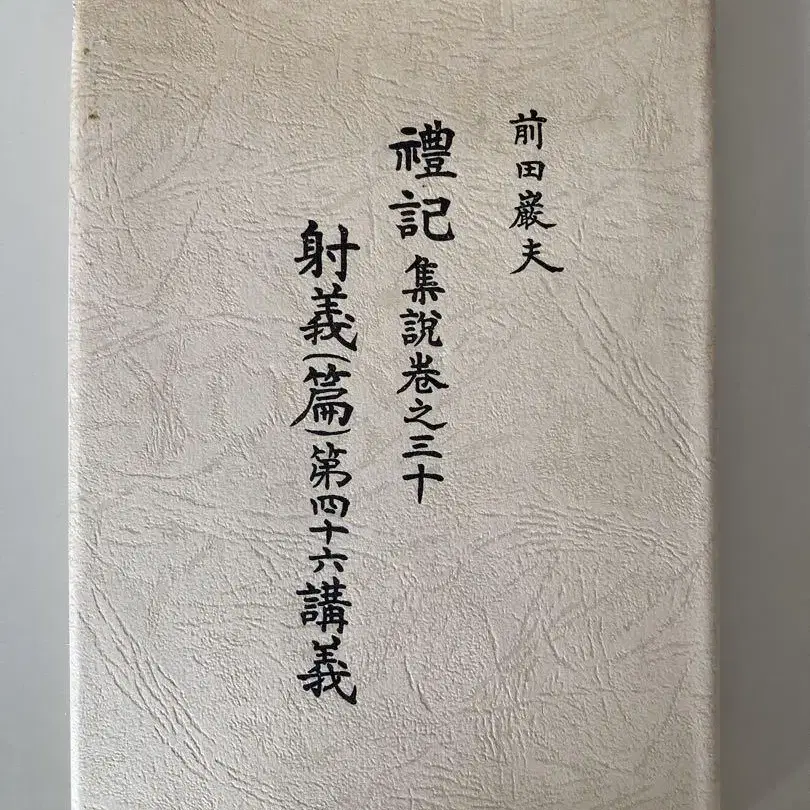 前田巌夫
禮記集說卷之三十
射義(篇)第四十六講義